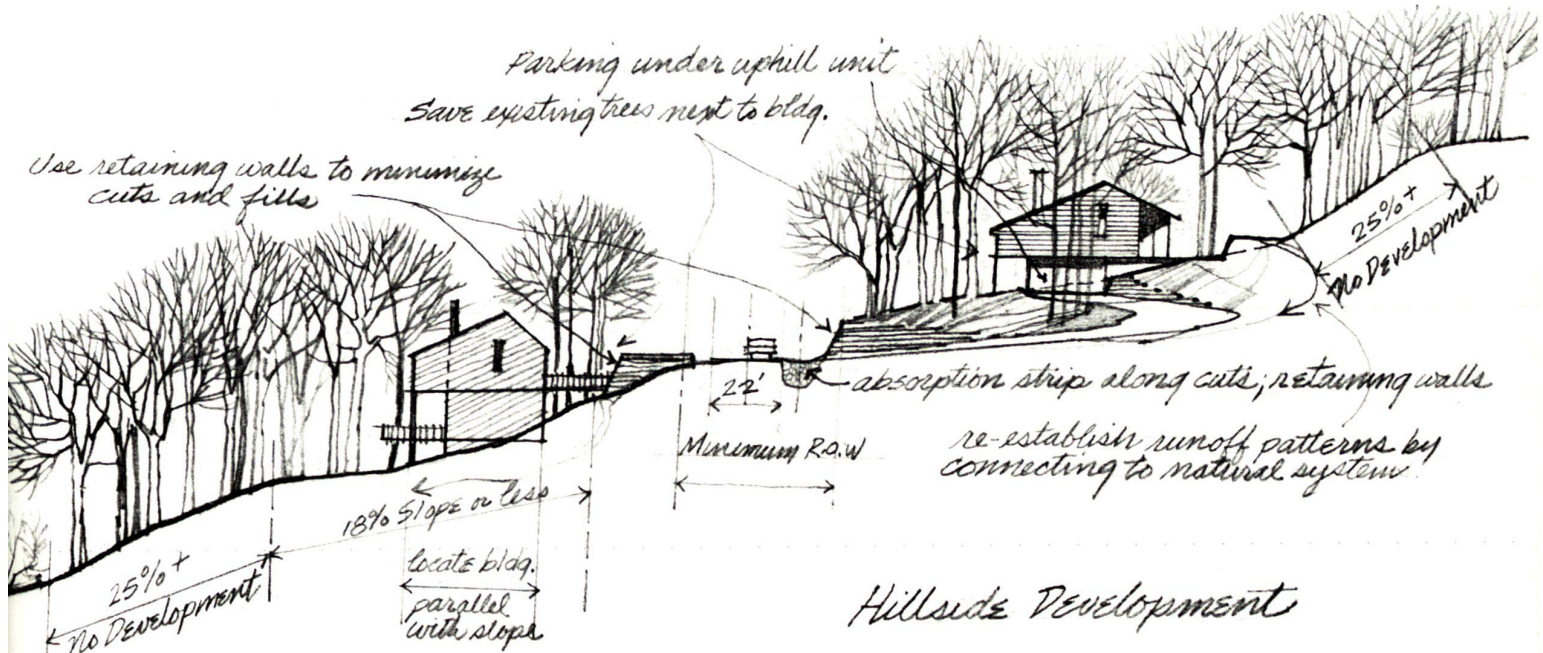 Parking under uphill unit
Save existing trees next to bldg.
Use retaining walls to minimize
cuts and fills
25%+
No Development
22'
absorption strip along cuts; retaining walls
Minimum R.O.W
re-establish runoff patterns by
connecting to natural system.
18% Slope or less
locate bldg.
parallel
with slope
25%+
No Development
Hillside Development